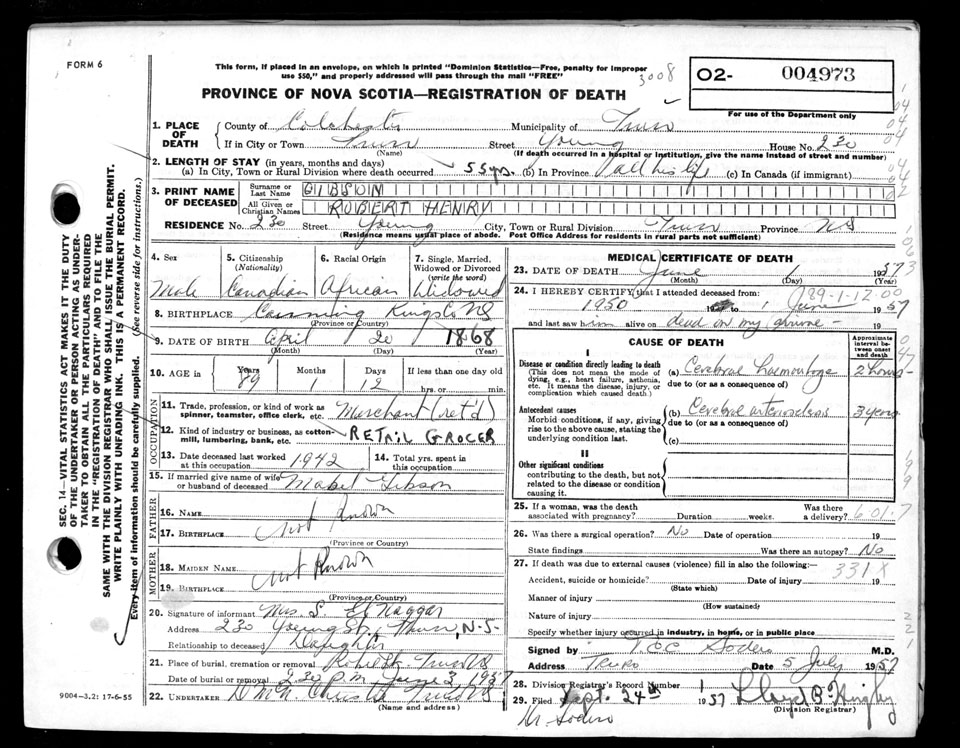 FORM 6
This form, if placed in an envelope, on which is printed "Dominion Statistics—Free, penalty for improper
use $50," and properly addressed will pass through the mail "FREE"
3008
PROVINCE OF NOVA SCOTIA—REGISTRATION OF DEATH
O2- 004973
For use of the Department only
1. PLACE OF DEATH
County of Colchester Municipality of Truro
If in City or Town Truro Street Young House No. 230
(Name) (If death occurred in a hospital or institution, give the name instead of street and number)
2. LENGTH OF STAY (in years, months and days)
(a) In City, Town or Rural Division where death occurred 55 yrs. (b) In Province all his life (c) In Canada (if immigrant)
3. PRINT NAME OF DECEASED
Surname or Last Name GIBSON
All Given or Christian Names ROBERT HENRY
RESIDENCE No. 230 Street Young City, Town or Rural Division Truro Province NS
(Residence means usual place of abode. Post Office Address for residents in rural parts not sufficient)
4. Sex Male
5. Citizenship (Nationality) Canadian
6. Racial Origin African
7. Single, Married, Widowed or Divorced (write the word) Widowed
8. BIRTHPLACE Kingston NS
(Province or Country)
9. DATE OF BIRTH April 20 1868
(Month) (Day) (Year)
10. AGE in Years 89 Months 1 Days 12 If less than one day old
hrs. or min.
OCCUPATION
11. Trade, profession, or kind of work as spinner, teamster, office clerk, etc. Merchant (ret'd)
12. Kind of industry or business, as cotton-mill, lumbering, bank, etc. RETAIL GROCER
13. Date deceased last worked at this occupation 1942
14. Total yrs. spent in this occupation
15. If married give name of wife or husband of deceased Mabel Gibson
FATHER
16. NAME
17. BIRTHPLACE Not Known
(Province or Country)
MOTHER
18. MAIDEN NAME
19. BIRTHPLACE Not Known
(Province or Country)
20. Signature of informant Mrs. S. El Naggar
Address 230 Young St., Truro, N.S.
Relationship to deceased Daughter
21. Place of burial, cremation or removal Robie St. Truro NS
Date of burial or removal 2.30 P.M. June 3 1957
22. UNDERTAKER Truro NS
(Name and address)
9004-3.2: 17-6-55
MEDICAL CERTIFICATE OF DEATH
23. DATE OF DEATH June 1 1957
(Month) (Day) (Year)
24. I HEREBY CERTIFY that I attended deceased from:
089-1-12.00
1950 1 June 1957
and last saw him alive on dead on my arrival - 19
CAUSE OF DEATH
Approximate interval between onset and death
I
Disease or condition directly leading to death
(This does not mean the mode of dying, e.g., heart failure, asthenia, etc. It means the disease, injury, or complication which caused death.)
(a) Cerebral haemorrhage 2 hours
due to (or as a consequence of)
Antecedent causes
Morbid conditions, if any, giving rise to the above cause, stating the underlying condition last.
(b) Cerebral arteriosclerosis 3 years
due to (or as a consequence of)
(c)
II
Other significant conditions
contributing to the death, but not related to the disease or condition causing it.
25. If a woman, was the death associated with pregnancy? Duration weeks. Was there a delivery? 601.7
26. Was there a surgical operation? No Date of operation 19
State findings Was there an autopsy? No
27. If death was due to external causes (violence) fill in also the following:—
331X
Accident, suicide or homicide? Date of injury 19
(State which)
Manner of injury
(How sustained)
Nature of injury
Specify whether injury occurred in industry, in home, or in public place
Signed by T C C Sodero M.D.
Address Truro Date 5 July 1957
28. Division Registrar's Record Number
29. Filed Sept. 24th 1957
(Division Registrar)
Dr Sodero
SEC. 14—VITAL STATISTICS ACT MAKES IT THE DUTY
OF THE UNDERTAKER OR PERSON ACTING AS UNDER-
TAKER TO OBTAIN ALL THE PARTICULARS REQUIRED
IN THE "REGISTRATION OF DEATH" AND TO FILE THE
SAME WITH THE DIVISION REGISTRAR WHO SHALL ISSUE THE BURIAL PERMIT.
WRITE PLAINLY WITH UNFADING INK. THIS IS A PERMANENT RECORD.
Every item of information should be carefully supplied. (See reverse side for instructions.)